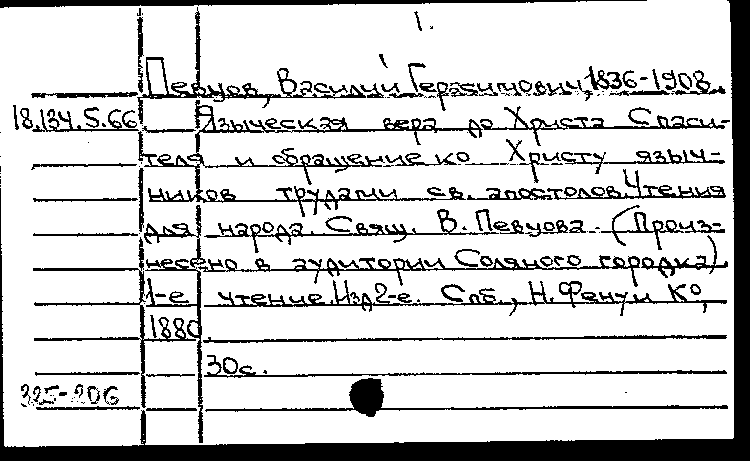 1.
Певцов, Василий Герасимович, 1836-1908.
18.134.5.66 Языческая вера до Христа Спаси-
теля и обращение ко Христу языч-
ников трудами св. апостолов. Чтения
для народа. Свящ. В. Певцова. (Произ-
несено в аудитории Соляного городка).
1-е чтение. Изд. 2-е. Спб., Н. Фену и К°,
1880.
30с.
325-206